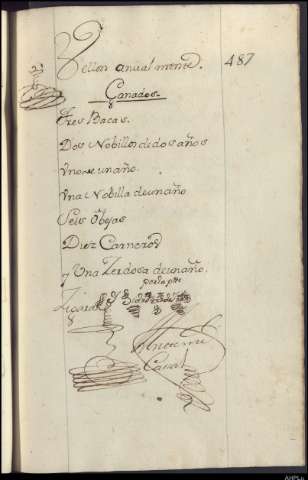 Vellon anualmente. 487
Ganados.
Tres Bacas.
Dos Nobillos de dos años
Vno de un año.
Vna Nobilla de un año
Seis Obejas
Diez Carneros
y Una Zerdosa de un año.
AHPLu